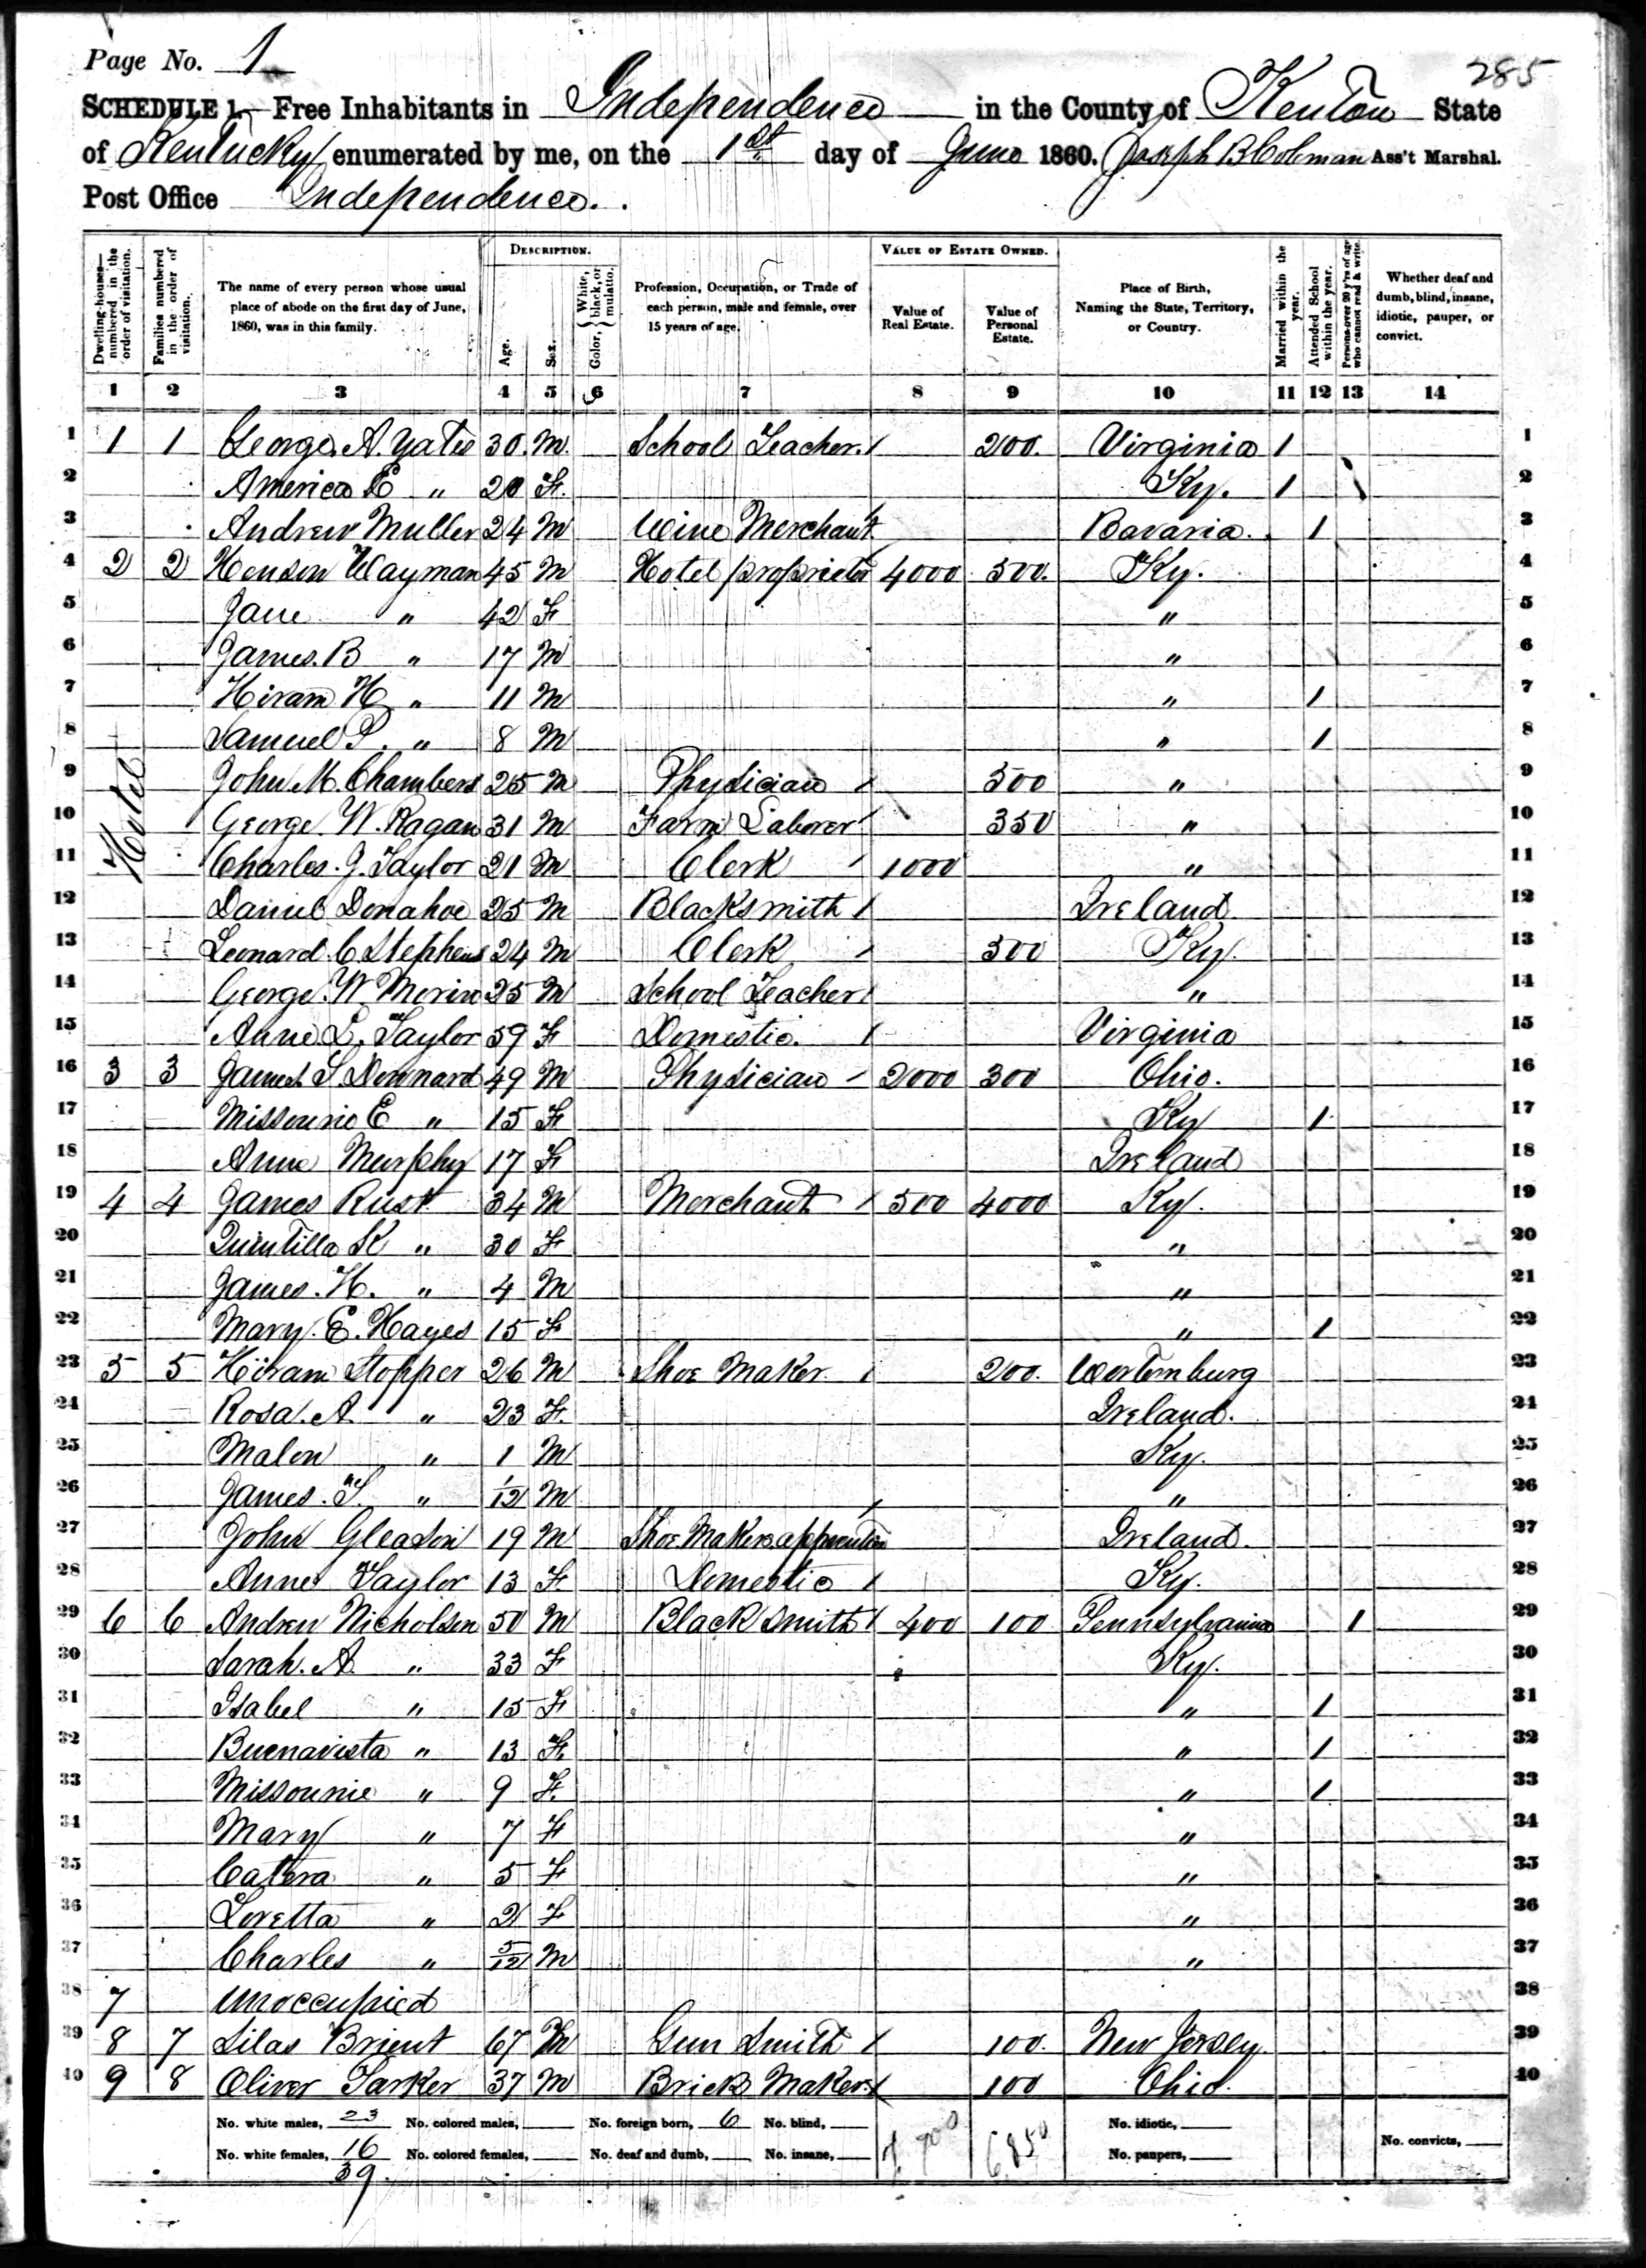 Page No. 1
285
SCHEDULE 1.—Free Inhabitants in Independence in the County of Kenton State
of Kentucky enumerated by me, on the 1st day of June 1860. Joseph B Coleman Ass't Marshal.
Post Office Independence.
Dwelling-houses—numbered in the order of visitation.
Families numbered in the order of visitation.
The name of every person whose usual place of abode on the first day of June, 1860, was in this family.
DESCRIPTION.
Age.
Sex.
Color, { White, black, or mulatto.
Profession, Occupation, or Trade of each person, male and female, over 15 years of age.
VALUE OF ESTATE OWNED.
Value of Real Estate.
Value of Personal Estate.
Place of Birth, Naming the State, Territory, or Country.
Married within the year.
Attended School within the year.
Persons over 20 y'rs of age who cannot read & write.
Whether deaf and dumb, blind, insane, idiotic, pauper, or convict.
1 2 3 4 5 6 7 8 9 10 11 12 13 14
1 1 1 George A. Yates 30. M. School Teacher. / 200. Virginia 1 1
2 America E " 20 F. Ky. 1 2
3 Andrew Muller 24 M Wine Merchant Bavaria. 1 3
4 2 2 Henson Wayman 45 M Hotel proprietor 4000 500. Ky. 4
5 Jane " 42 F " 5
6 James. B " 17 M " 6
7 Hiram H " 11 M " 1 7
8 Samuel P. " 8 M " 1 8
Hotel
9 John M. Chambers 25 M Physician / 500 " 9
10 George. W. Ragan 31 M Farm Laborer / 350 " 10
11 Charles. J. Taylor 21 M Clerk / 1000 " 11
12 Daniel Donahoe 25 M Blacksmith / Ireland 12
13 Leonard. C Stephens 24 M Clerk / 500 Ky. 13
14 George. W. Morin 25 M School Teacher / " 14
15 Anne L. Taylor 59 F Domestic. / Virginia 15
16 3 3 James S Donnard 49 M Physician / 2000 300 Ohio. 16
17 Missourie E " 15 F Ky 1 17
18 Anne Murphy 17 F Ireland 18
19 4 4 James Rust 34 M Merchant / 500 4000 Ky. 19
20 Quintilla K " 30 F " 20
21 James. H. " 4 M " 21
22 Mary. E. Hayes 15 F " 1 22
23 5 5 Hiram Stopper 26 M Shoe Maker / 200. Wortemburg 23
24 Rosa. A. " 23 F. Ireland. 24
25 Malon " 1 M Ky. 25
26 James. T. " 1/12 M " 26
27 John Gleason 19 M Shoe Makers apprentice / Ireland. 27
28 Anne Taylor 13 F Domestic / Ky. 28
29 6 6 Andrew Nicholson 50 M Black Smith / 400 100 Pennsylvania 1 29
30 Sarah. A. " 33 F Ky. 30
31 Isabel " 15 F " 1 31
32 Buenavista " 13 F. " 1 32
33 Missourie " 9 F. " 1 33
34 Mary " 7 F " 34
35 " 5 F " 35
36 Loretta " 2 F " 36
37 Charles " 5/12 M " 37
38 7 Unoccupied 38
39 8 7 Silas Brient 67 M Gun Smith / 100. New Jersey 39
40 9 8 Oliver Tarker 37 M Brick Maker / 100 Ohio. 40
No. white males, 23 No. colored males, No. foreign born, 6 No. blind, 7,900 6,850 No. idiotic,
No. white females, 16 No. colored females, No. deaf and dumb, No. insane, No. paupers, No. convicts,
39.